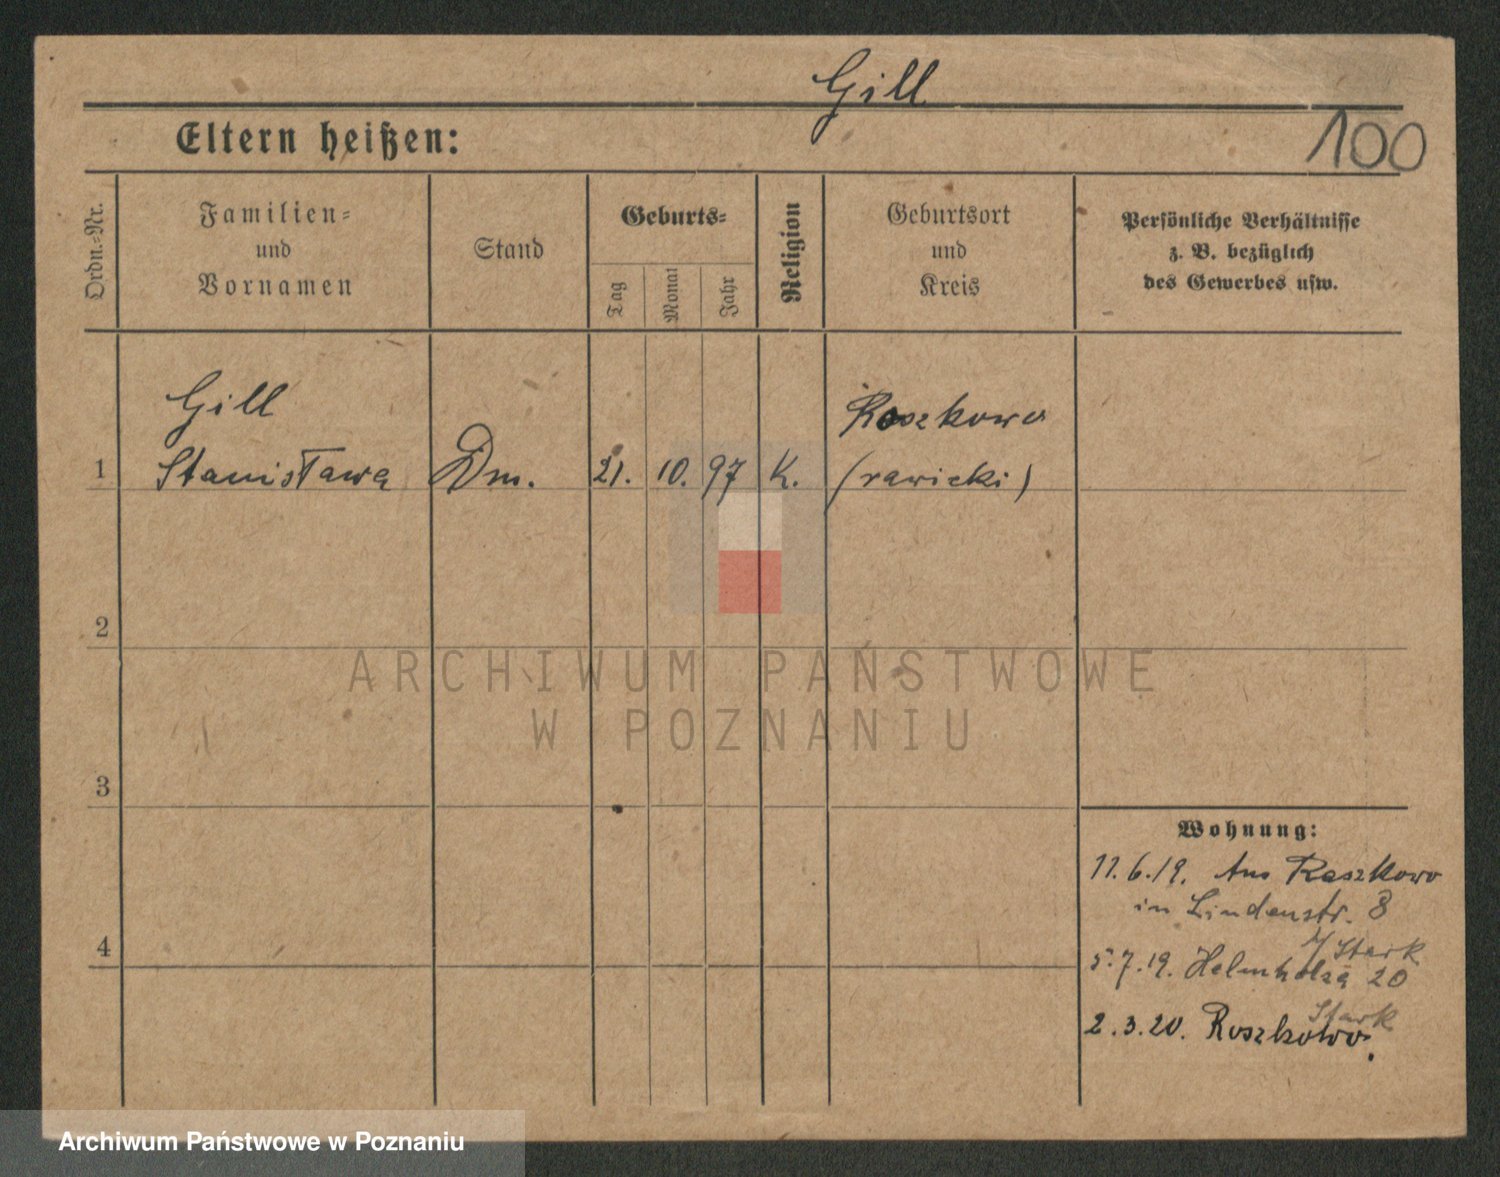 Gill
Eltern heißen:
100
Ordn.-Nr.
Familien-
und
Vornamen
Stand
Geburts-
Tag
Monat
Jahr
Religion
Geburtsort
und
Kreis
Persönliche Verhältnisse
z. B. bezüglich
des Gewerbes usw.
Gill
Roszkowo
1 Stanisława Dm. 21. 10. 97 K. (rawicki)
2
3
4
Wohnung:
11.6.19. Aus Roszkowo
in Lindenstr. 8
Stark
5.7.19. Helmholza 20
Stark
2.3.20. Roszkowo.
ARCHIWUM PAŃSTWOWE
W POZNANIU
Archiwum Państwowe w Poznaniu